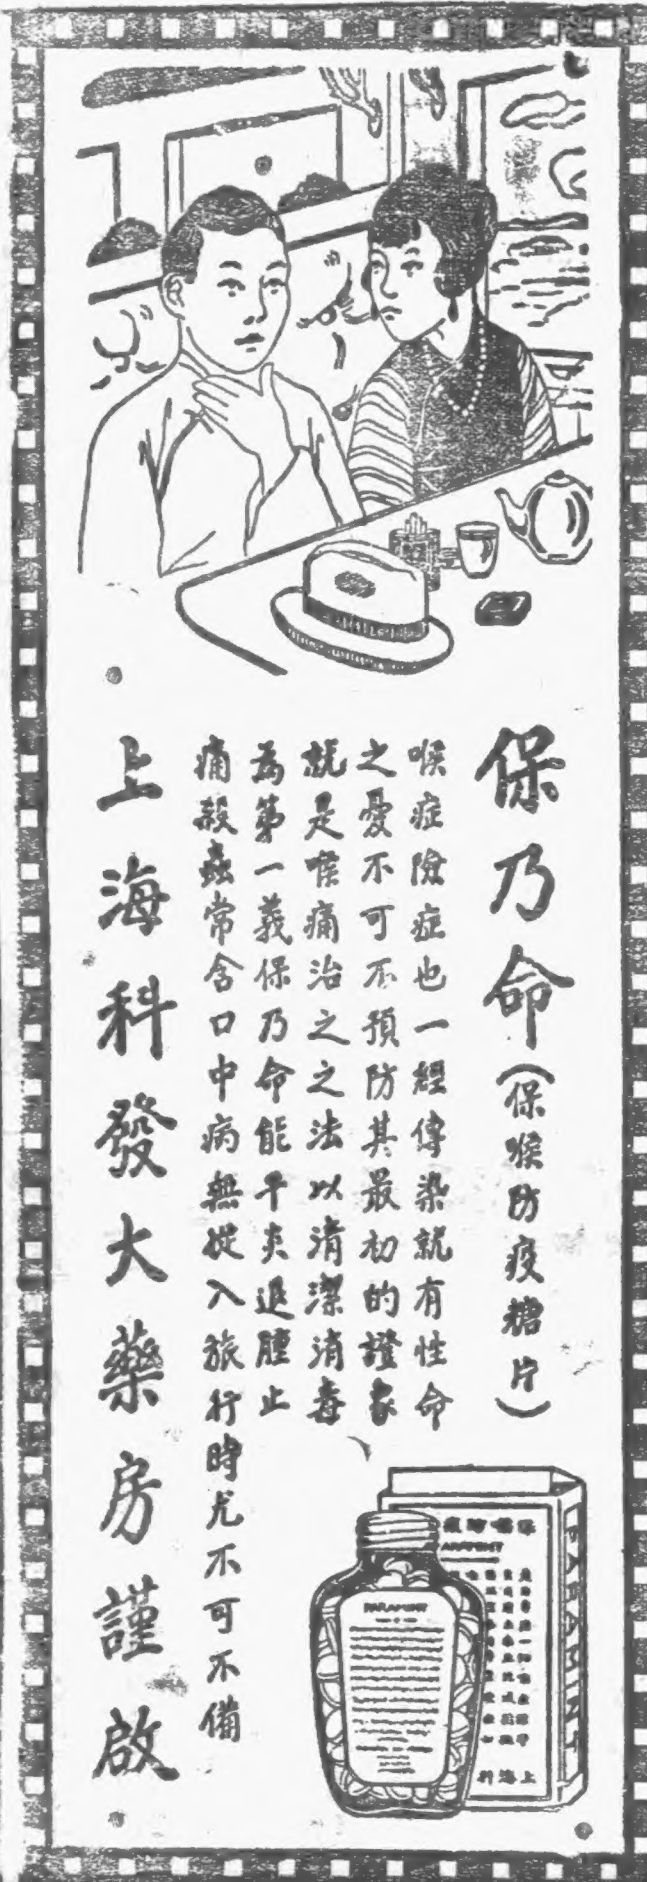 保乃命(保喉防疫糖片)
喉症險症也一經傳染就有性命
之憂不可不預防其最初的證象
就是喉痛治之之法以清潔消毒
為第一義保乃命能平炎退腫止
痛殺蟲常含口中病無從入旅行時尤不可不備
上海科發大藥房謹啟
PARAMINT
PARAMINT